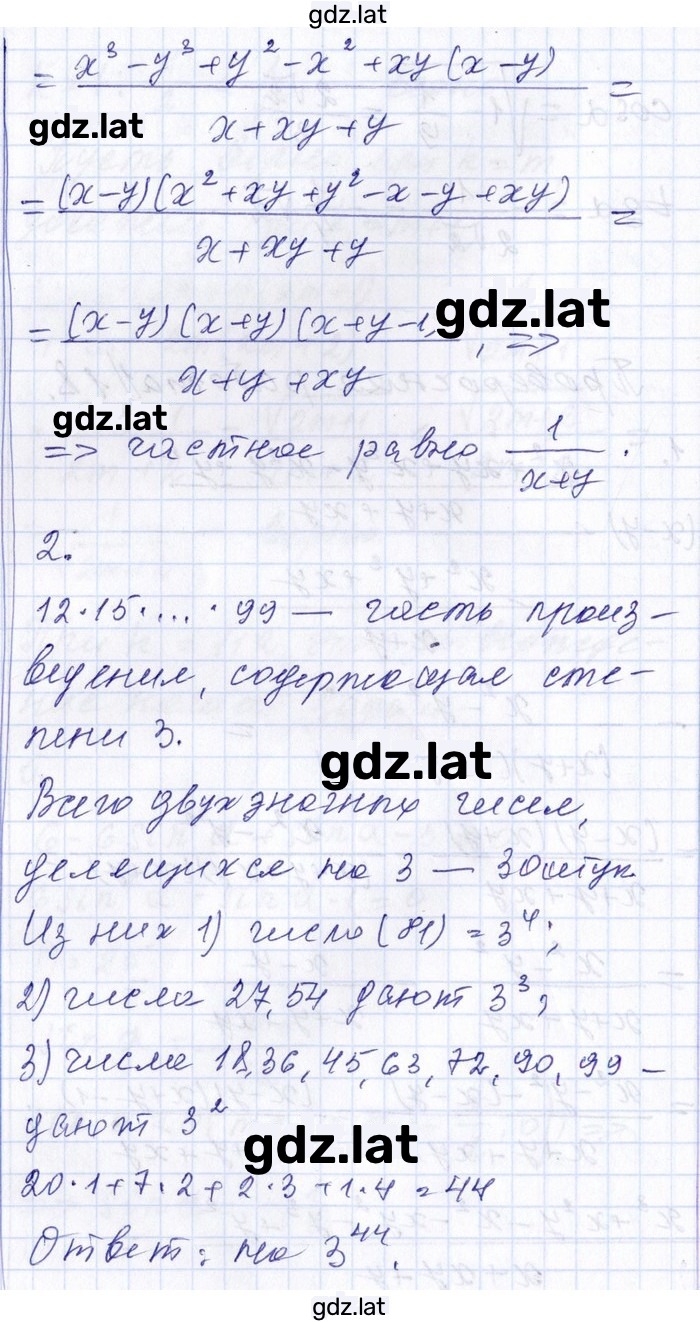 gdz.lat
= x³ - y³ + y² - x² + xy (x - y) / x + xy + y =
gdz.lat
= (x - y) (x² + xy + y² - x - y + xy) / x + xy + y =
= (x - y) (x + y) (x + y - 1) / x + y + xy , =>
gdz.lat
gdz.lat
=> частное равно 1 / x + y .
2.
12 · 15 · ... · 99 — часть произ-
ведения, содержащая сте-
пени 3.
gdz.lat
Всего двухзначных чисел,
делящихся на 3 — 30 штук.
Из них 1) число (81) = 3⁴;
2) числа 27, 54 дают 3³;
3) числа 18, 36, 45, 63, 72, 90, 99 —
дают 3²
gdz.lat
20 · 1 + 7 · 2 + 2 · 3 + 1 · 4 = 44
Ответ: на 3⁴⁴.
gdz.lat